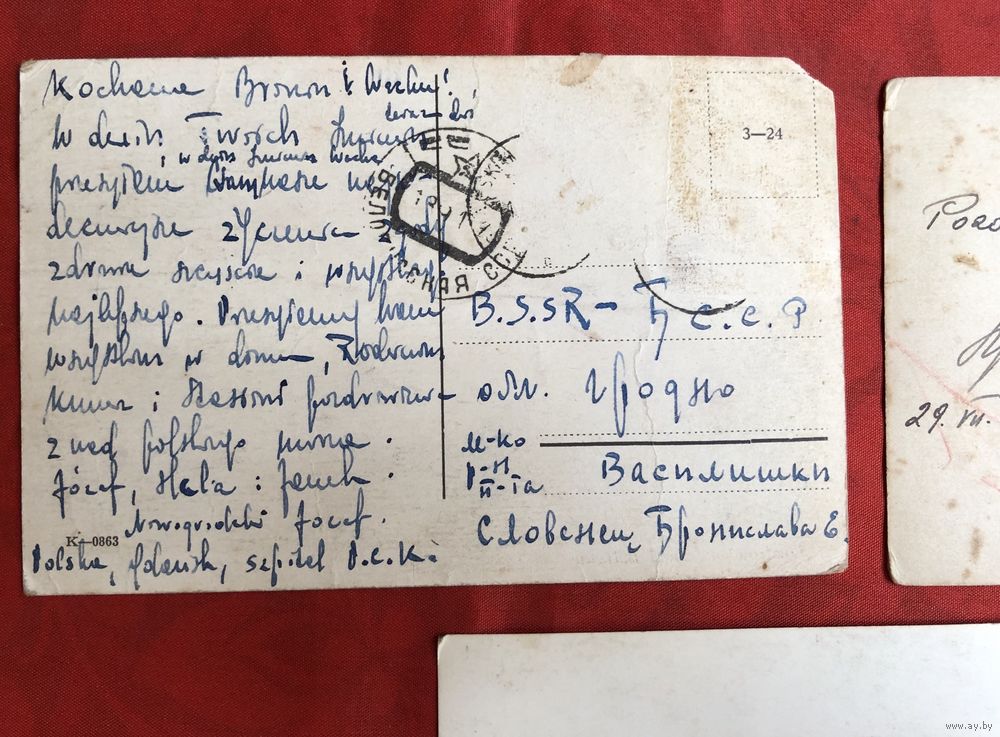 Kochana Broniu i Wacku!
W dniu Twoich Imienin
i w dniu Imienin Wacka
przesyłam
decznejsze życzenia
zdrowia szczęścia i wszystkiego
najlepszego. Przesyłamy Wam
wszystkim w domu,
i pozdrowienia
z nad polskiego morza.
Józef, Hela i Janek.
Nowogrodzki Józef.
K—0863
Polska, Gdańsk, szpital P.C.K.
БЕЛО
СКАЯ ССР
3—24
B.S.S.R — Б С.С.Р.
обл. Гродно
м-ко
р-н
п-та
Василишки
Словенец, Бронислава Е.
29. VII.
www.ay.by